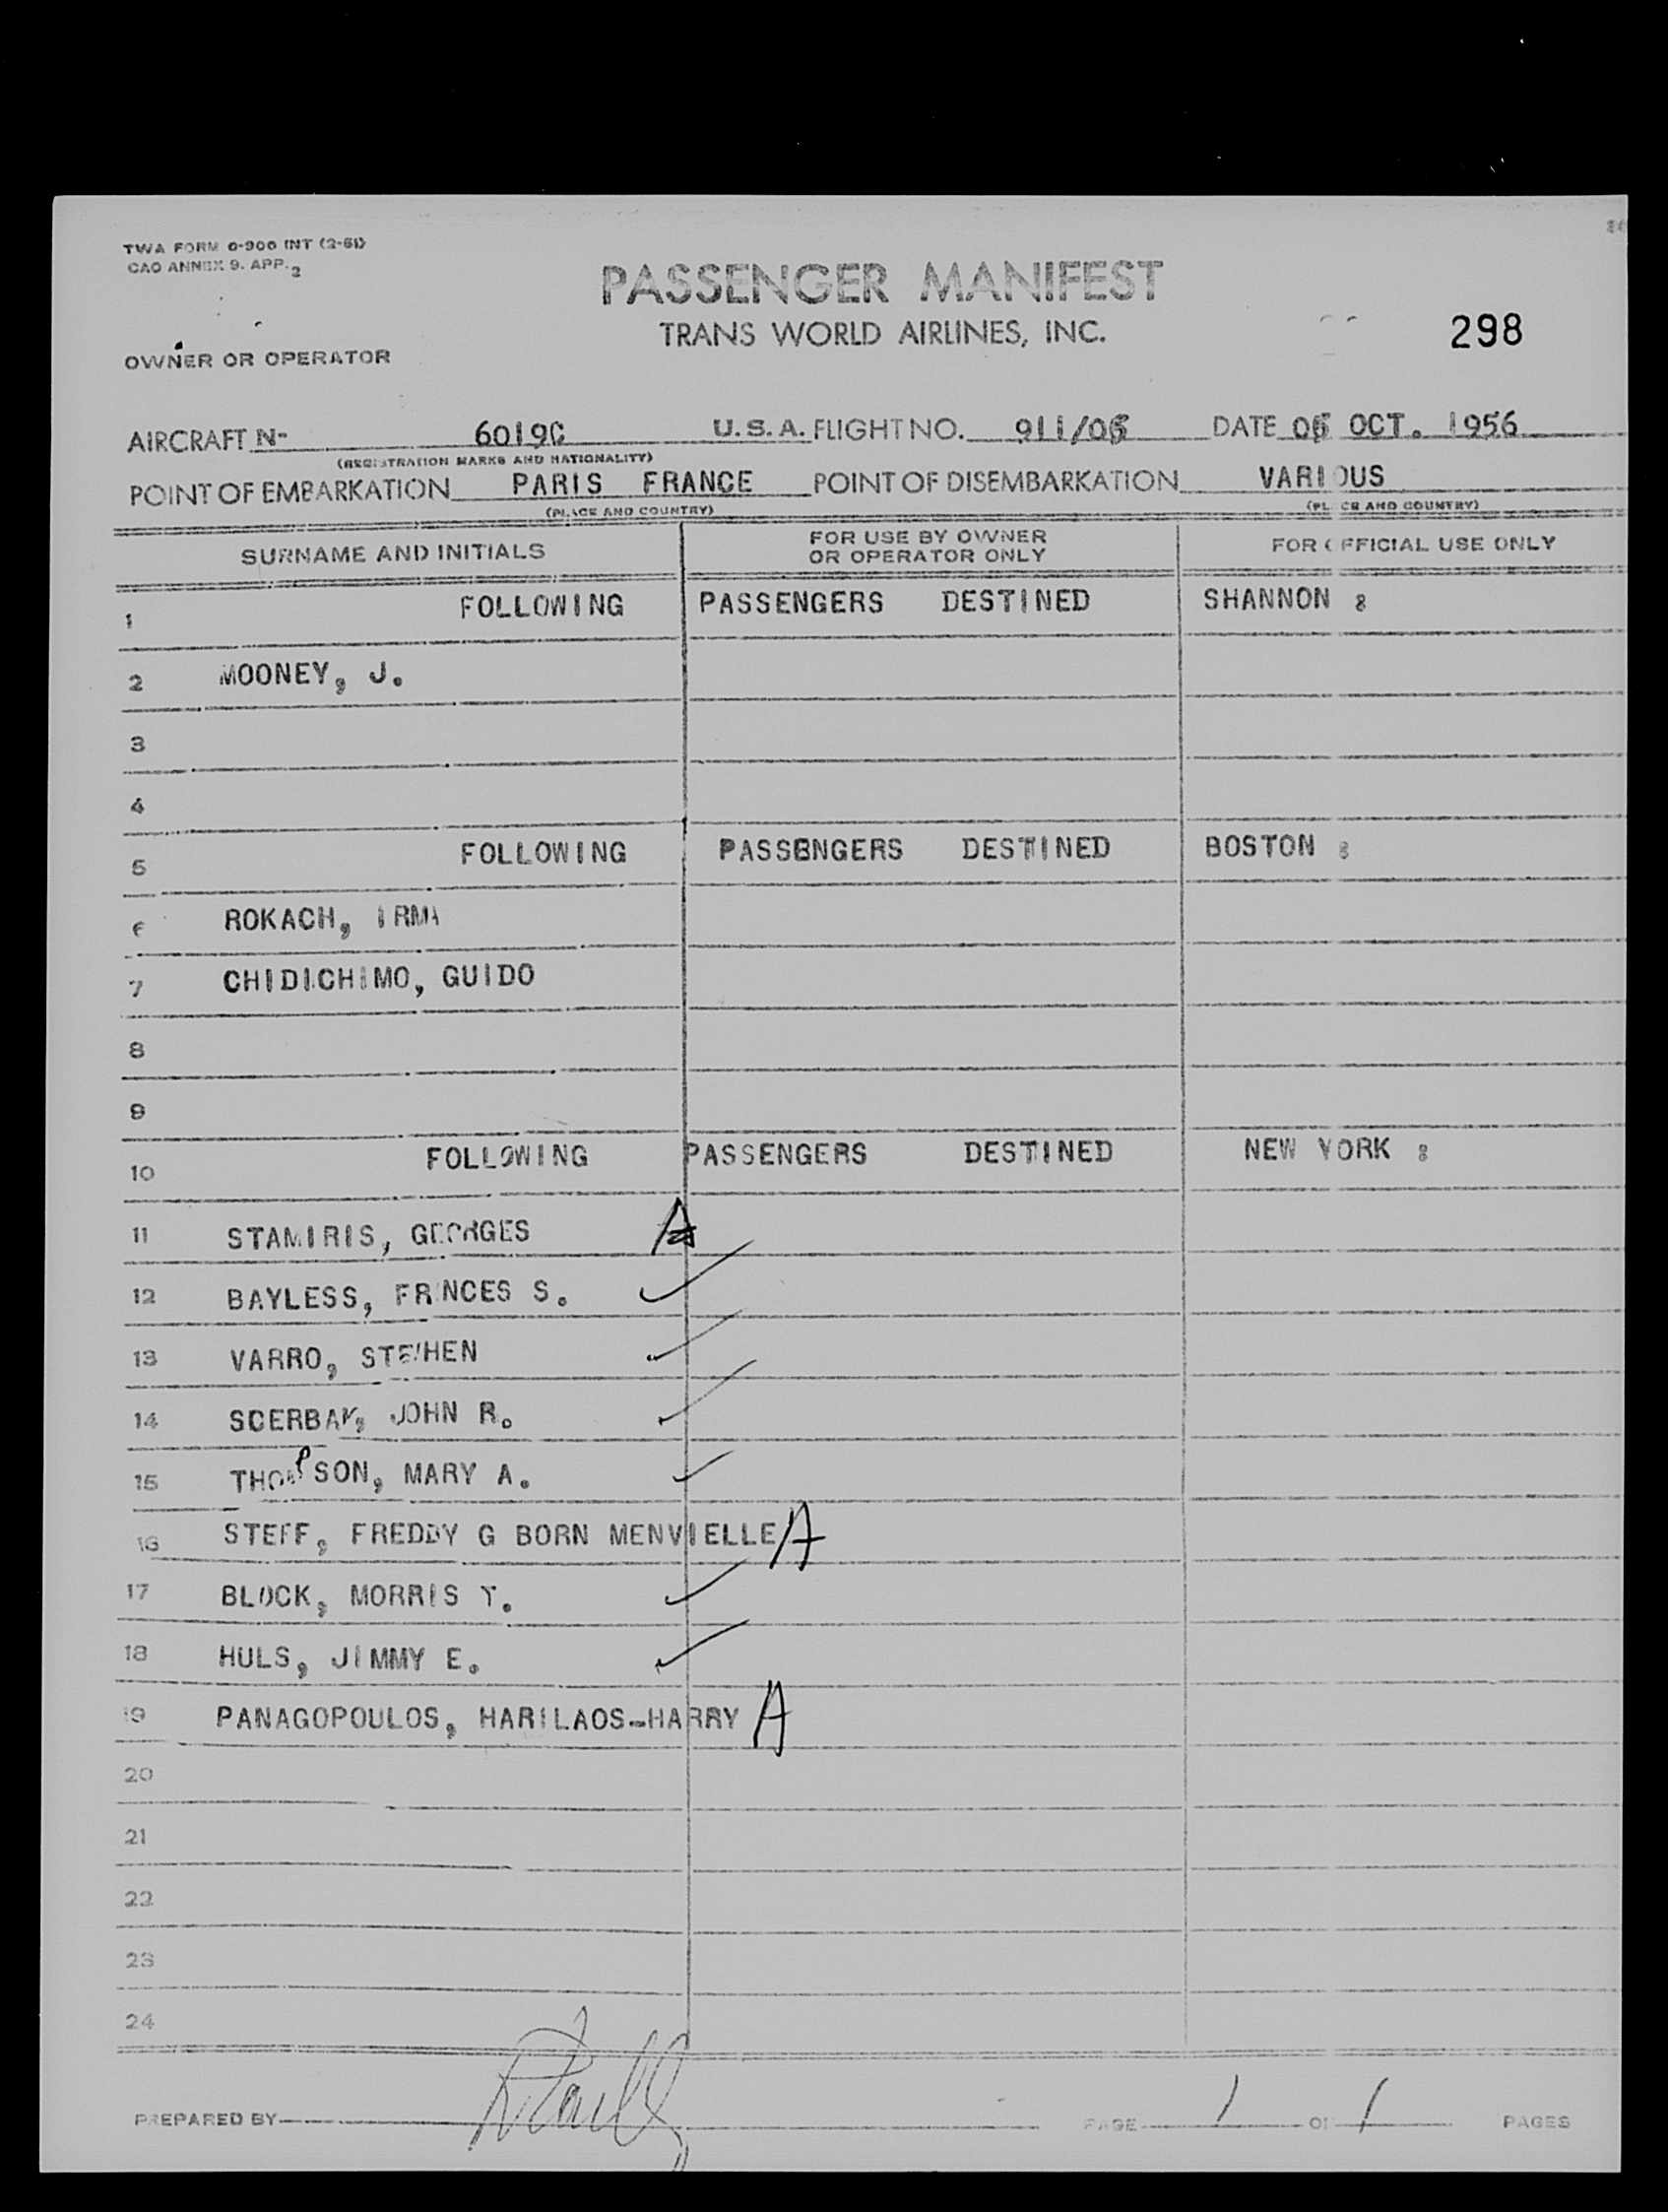 TWA FORM 0-900 INT (2-51)
CAO ANNEX 9. APP. 2
PASSENGER MANIFEST
TRANS WORLD AIRLINES, INC.
298
OWNER OR OPERATOR
AIRCRAFT N- 6019C U.S.A. FLIGHT NO. 911/05 DATE 05 OCT. 1956
(REGISTRATION MARKS AND NATIONALITY)
POINT OF EMBARKATION PARIS FRANCE POINT OF DISEMBARKATION VARIOUS
(PLACE AND COUNTRY) (PLACE AND COUNTRY)
SURNAME AND INITIALS FOR USE BY OWNER OR OPERATOR ONLY FOR OFFICIAL USE ONLY
1 FOLLOWING PASSENGERS DESTINED SHANNON :
2 MOONEY, J.
3
4
5 FOLLOWING PASSENGERS DESTINED BOSTON :
6 ROKACH, IRMA
7 CHIDICHIMO, GUIDO
8
9
10 FOLLOWING PASSENGERS DESTINED NEW YORK :
11 STAMIRIS, GEORGES A
12 BAYLESS, FRANCES S. ✓
13 VARRO, STEPHEN ✓
14 SCERBAK, JOHN R. ✓
15 THOMPSON, MARY A. ✓
16 STEFF, FREDDY G BORN MENVIELLE A
17 BLOCK, MORRIS T. ✓
18 HULS, JIMMY E. ✓
19 PANAGOPOULOS, HARILAOS-HARRY A
20
21
22
23
24
PREPARED BY PAGE 1 OF 1 PAGES